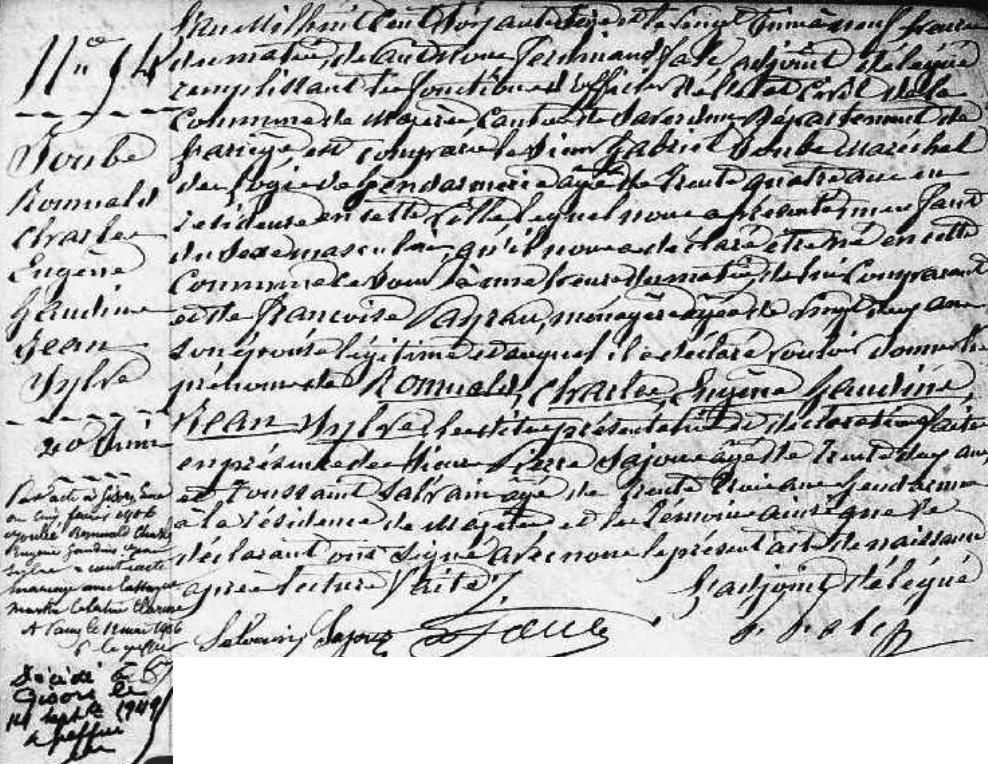 N° 94
Soube
Romuald
Charles
Eugène
Gaudine
Jean
Sylve
20 Juin
Par acte à Gisors, Eure
le cinq février 1906
Romuald Charles
Eugène Gaudine Jean
Sylve a contracté
mariage avec
Martha Clarisse
Le greffier
Décédé à
Gisors le
14 septbre 1949
Le greffier
L'an Mil huit cent soixante et le vingt Juin à neuf heures
du matin, devant nous Ferminand adjoint délégué
remplissant les fonctions d'officier de l'état Civil de la
Commune de Mazères Canton de Saverdun Département de
l'ariège, est comparu le Sieur Gabriel Soube Maréchal
des logis de Gendarmerie âgé de trente quatre ans en
résidence en cette Ville, lequel nous a présenté un enfant
du sexe masculin, qu'il nous a déclaré être né en cette
Commune ce jour à une heure du matin, de lui Comparant
et de Françoise Payrau, ménagère âgée de vingt deux ans
son épouse légitime et auquel il a déclaré vouloir donner les
prénoms de Romuald, Charles, Eugène Gaudine,
Jean Sylve, les dites présentation et déclaration faites
en présence des Sieurs Pierre Sajous âgé de trente deux ans,
et Toussaint Salvain âgé de trente trois ans Gendarmes
à la résidence de Mazères et les témoins ainsi que le
déclarant ont signé avec nous le présent acte de naissance
après lecture faite.
L'adjoint délégué
Salvain Sajous Soube